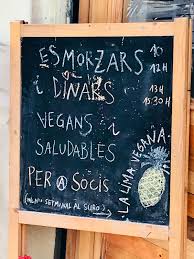 ESMORZARS 10
12H
i DINARS 13H
15:30H
VEGANS i
SALUDABLES
PER A SOCIS
(MENÚ SETMANAL AL SURO)
LA LIMA VEGANA